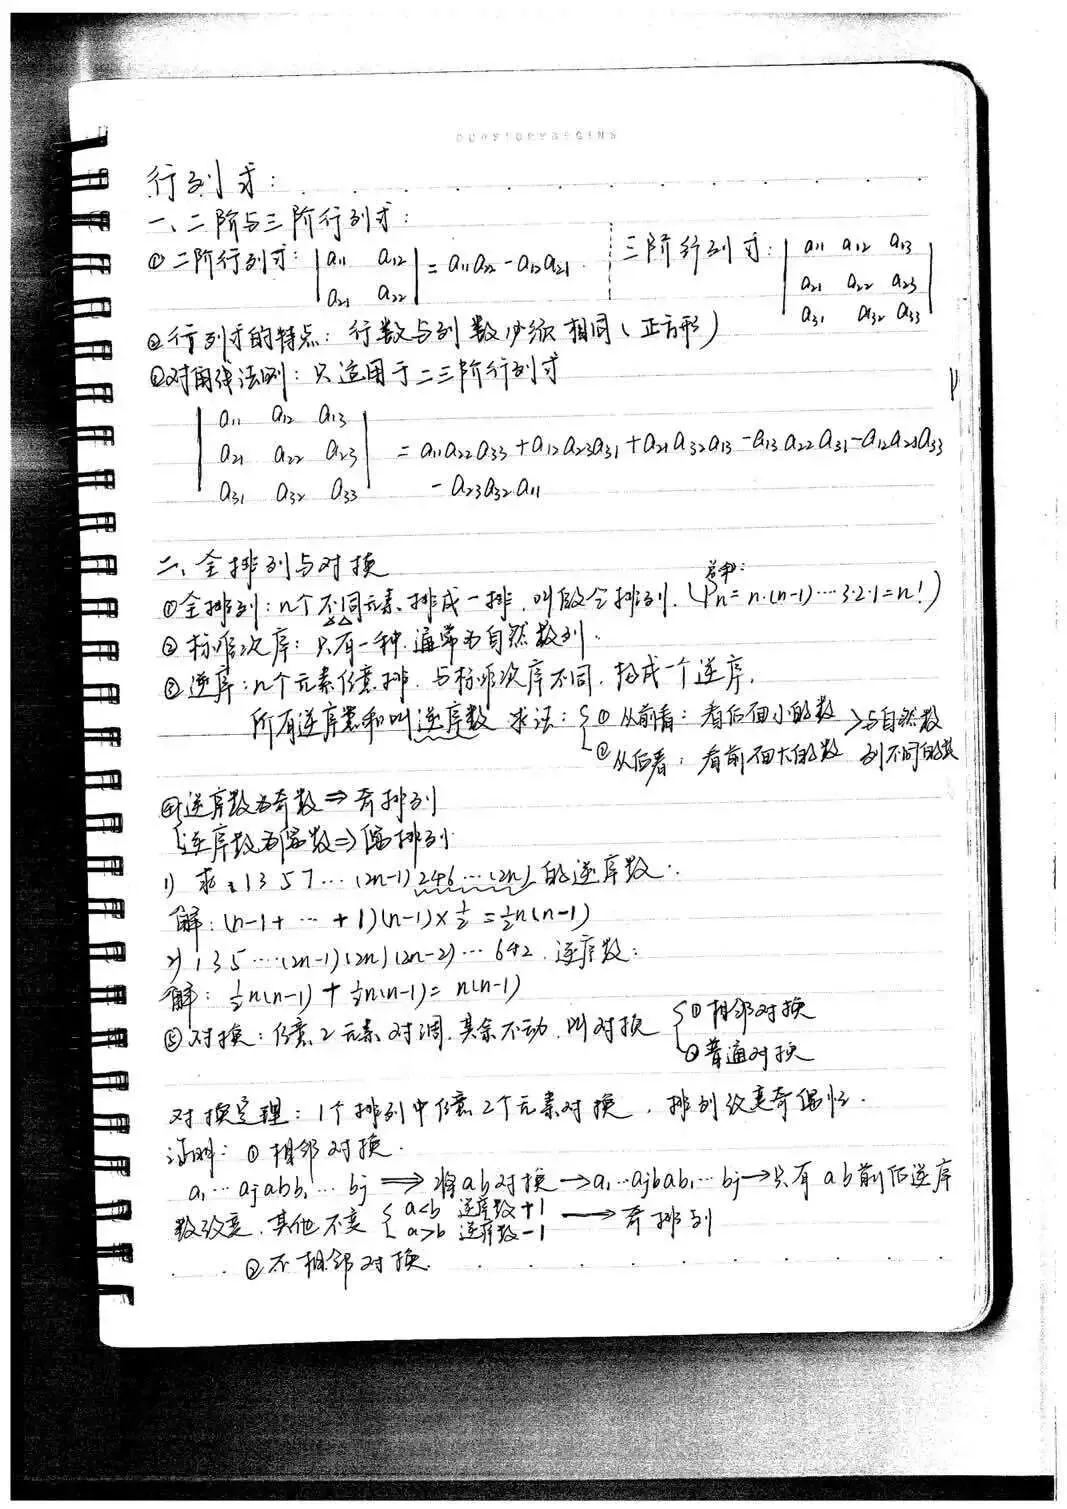 行列式:
一、二阶与三阶行列式:
① 二阶行列式: | a11 a12 | = a11a22 - a12a21. 三阶行列式: | a11 a12 a13 |
| a21 a22 | | a21 a22 a23 |
| a31 a32 a33 |
②行列式的特点: 行数与列数必须相同(正方形)
③对角线法则: 只适用于二三阶行列式
| a11 a12 a13 |
| a21 a22 a23 | = a11a22a33 + a12a23a31 + a21a32a13 - a13a22a31 - a12a21a33
| a31 a32 a33 | - a23a32a11
二、全排列与对换
①全排列: n个不同元素排成一排, 叫做全排列. (Pn = n·(n-1)···3·2·1 = n!)
② 标准次序: 只有一种. 通常为自然数列.
③ 逆序: n个元素任意排, 与标准次序不同, 构成一个逆序.
所有逆序总和叫逆序数 求法: { ① 从前看: 看后面小的数 > 与自然数
② 从后看: 看前面大的数 列不同的数
④{逆序数为奇数 ⇒ 奇排列
{逆序数为偶数 ⇒ 偶排列
1) 求: 1 3 5 7 ··· (2n-1) 2 4 6 ··· (2n) 的逆序数.
解: (n-1 + ··· + 1)(n-1)×½ = ½n(n-1)
2) 1 3 5 ··· (2n-1)(2n)(2n-2) ··· 6 4 2. 逆序数:
解: ½n(n-1) + ½n(n-1) = n(n-1)
⑤ 对换: 任意2元素对调, 其余不动, 叫对换 { ① 相邻对换
② 普通对换
对换定理: 1个排列中任意2个元素对换, 排列改变奇偶性.
证明: ① 相邻对换.
a1 ··· aj a b b1 ··· bj ⟹ 将ab对换 → a1 ··· aj b a b1 ··· bj → 只有ab前后逆序
数改变, 其他不变 { a<b 逆序数+1 → 奇排列
{ a>b 逆序数-1
② 不相邻对换.